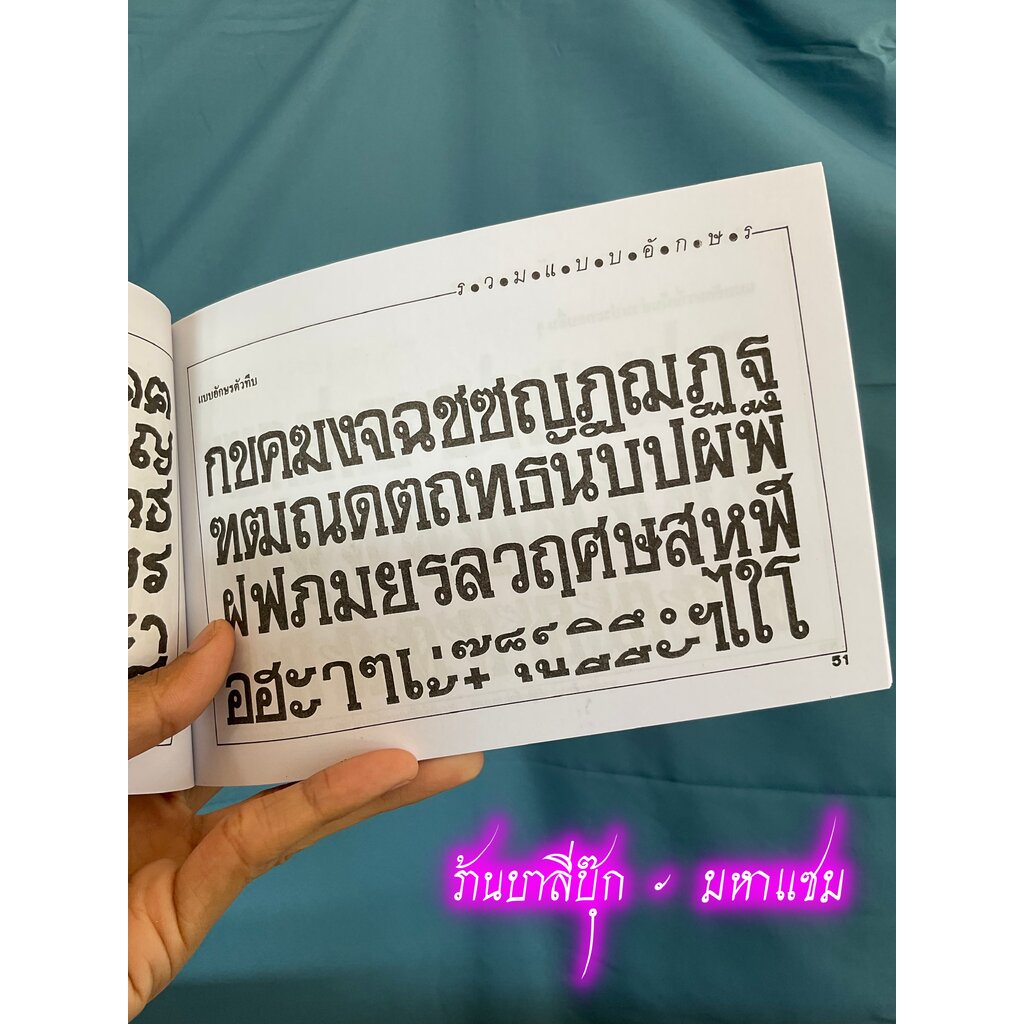 ร•ว•ม•แ•บ•บ•อั•ก•ษ•ร
แบบอักษรตัวทึบ
กขคฆงจฉชซญฎฌฏฐ
ฑฒณดตถทธนบปผพ
ฝฟภมยรลวฤศษสหฬ
อฮะาๆเ
ไใโ
51
ร้านบาลีบุ๊ก - มหาแซม